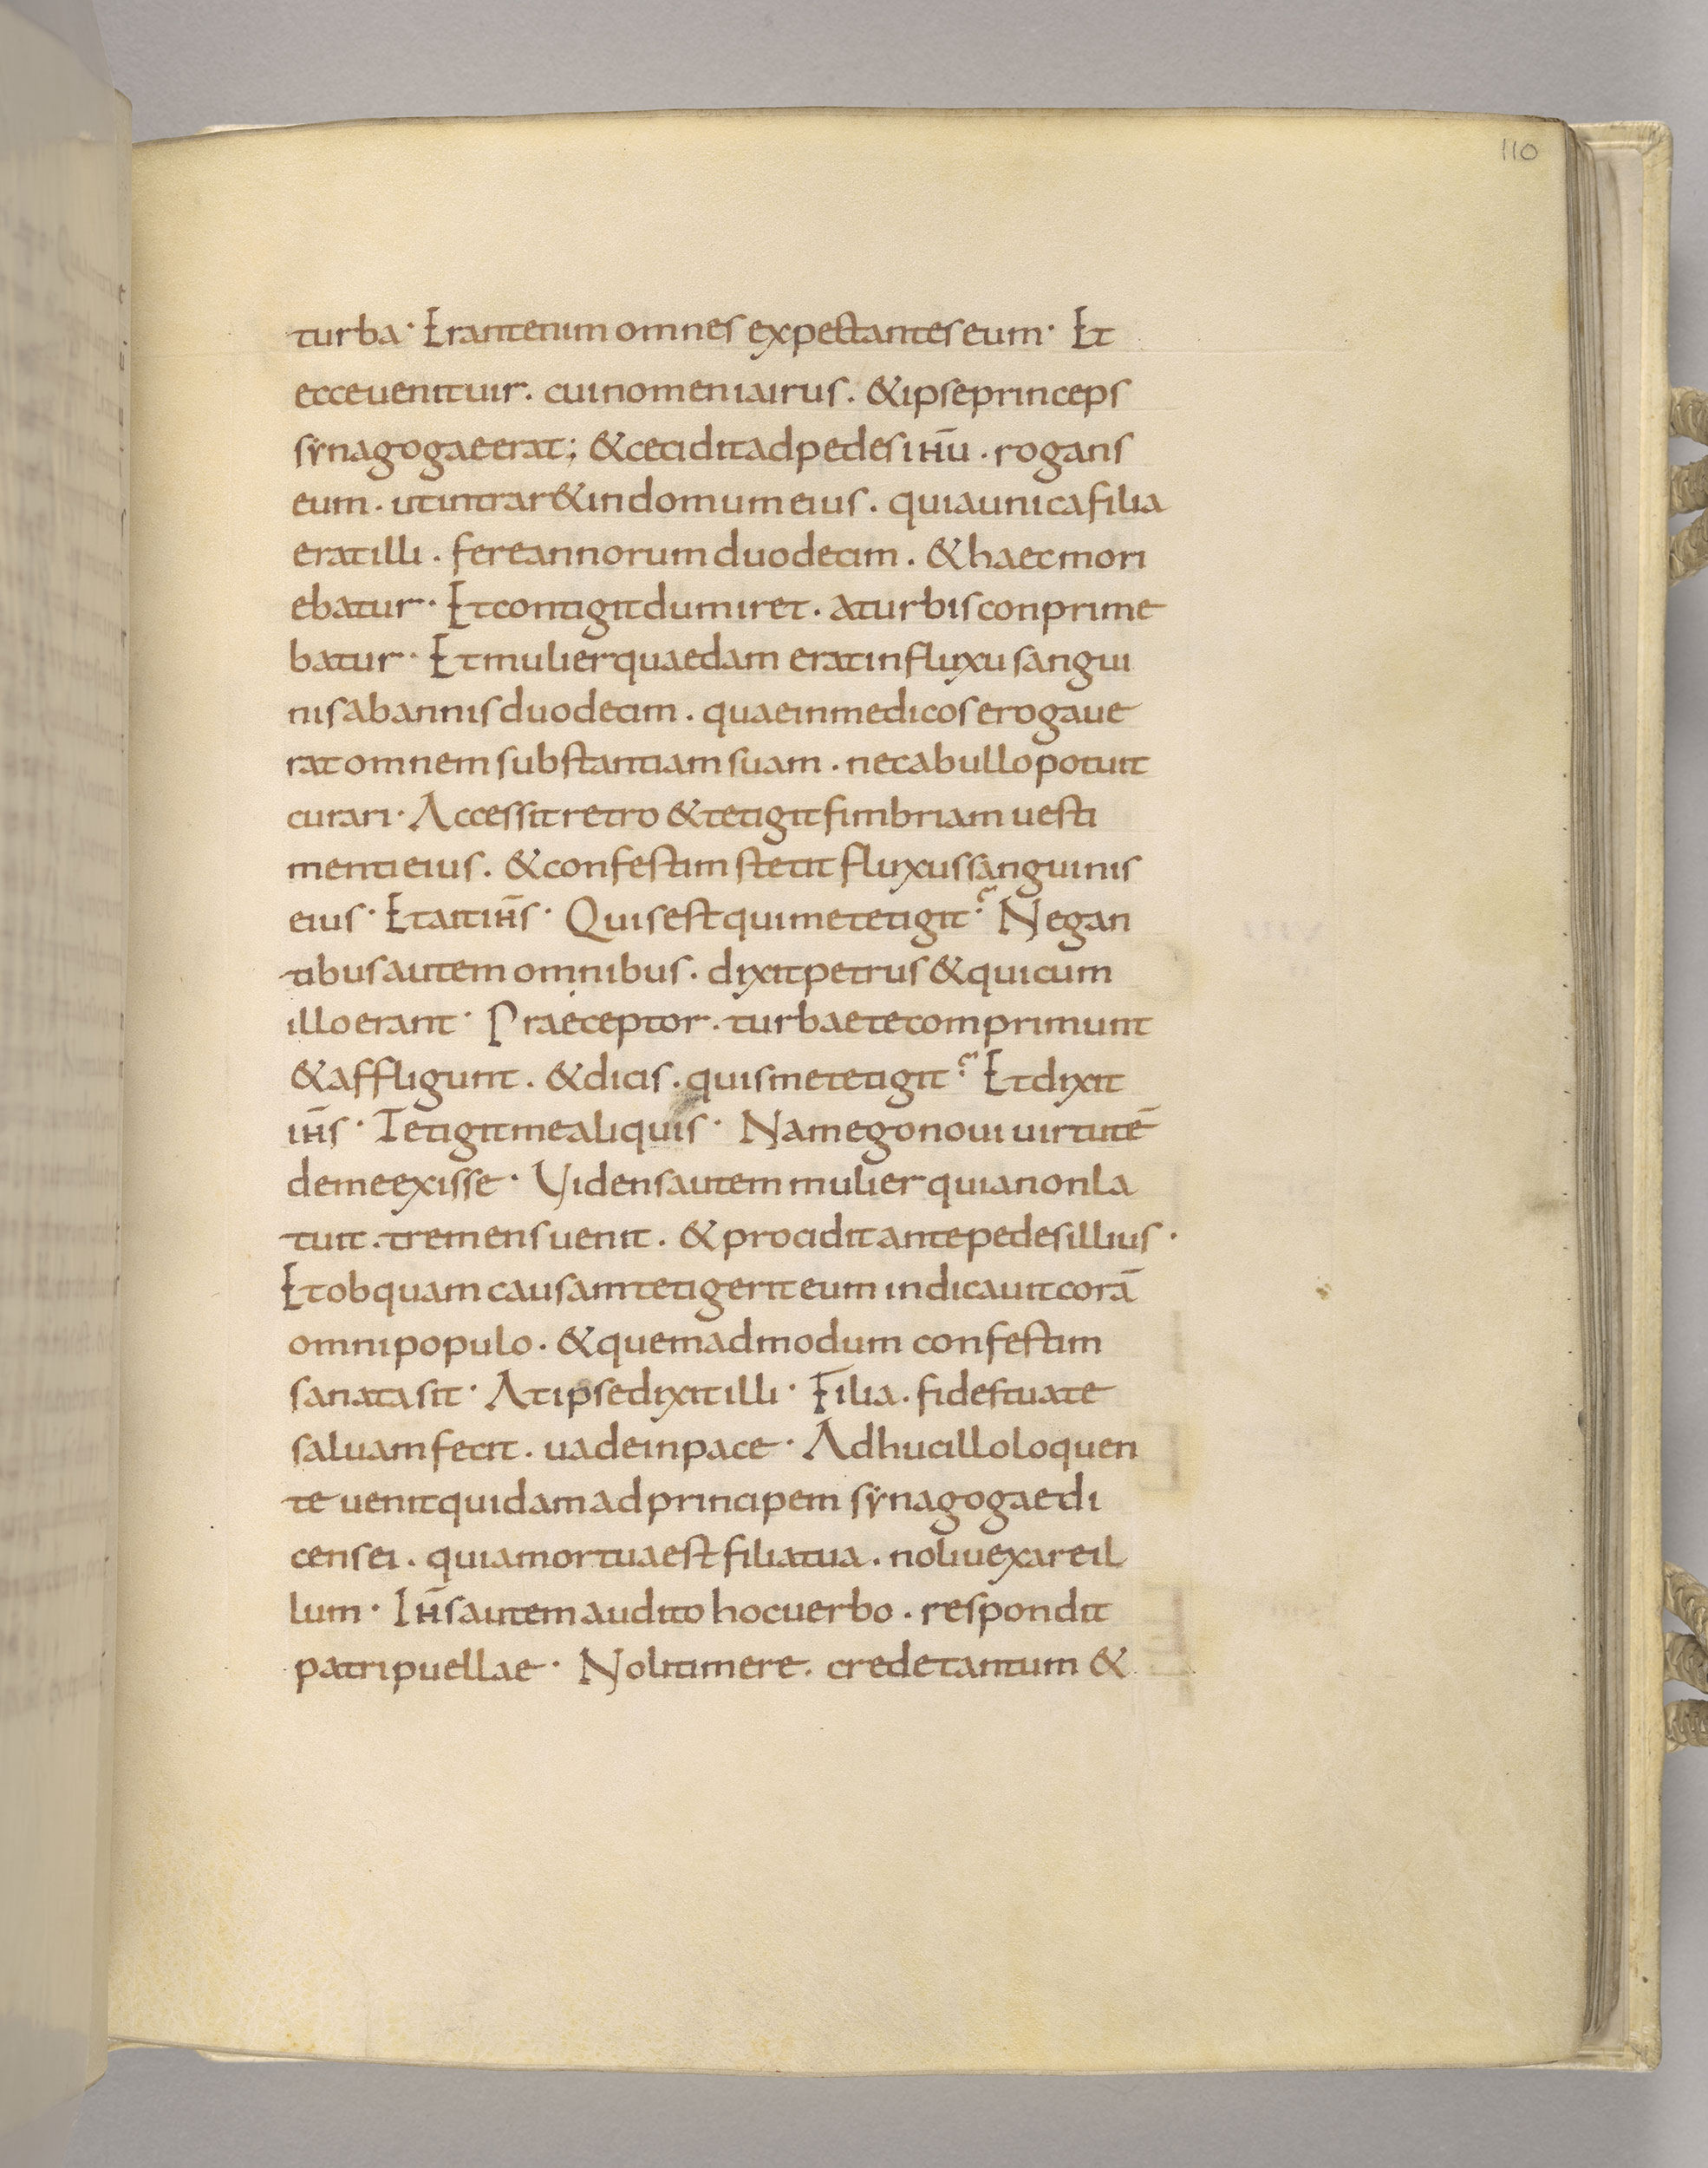 110
turba· Erantenim omnes expectantes eum· Et
ecceuenituir. cuinomeniairus. &ipseprinceps
synagogaeerat; &ceciditadpedes ihū. rogans
eum. utintrar&indomumeius. quiaunicafilia
eratilli. fereannorumduodecim. &haecmori
ebatur· Etcontigitdumiret. aturbisconprime
batur· Etmulierquaedam eratinfluxusangui
nisabannisduodecim. quaeinmedicoserogaue
ratomnemsubstantiamsuam. necabullopotuit
curari· Accessitretro &tetigitfimbriam uesti
mentieius. &confestimstetit fluxussanguinis
eius· Etaitih̄s· Quisestquimetetigit? Negan
tibusautemomnibus. dixitpetrus&quicum
illoerant· Praeceptor. turbaetecomprimunt
&affligunt. &dicis. quismetetigit? Etdixit
ih̄s· Tetigitmealiquis· Namegonoui uirtutē
demeexisse· Uidensautemmulierquianonla
tuit. tremensuenit. &prociditantepedesillius·
Etobquamcausamtetigeriteum indicauitcorā
omnipopulo. &quemadmodum confestim
sanatasit· Atipsedixitilli· Filia. fidestuate
saluamfecit. uadeinpace· Adhucilloloquen
te uenitquidamadprincipem synagogaedi
censei. quiamortuaestfiliatua. noliuexareil
lum· Ih̄sautemaudito hocuerbo. respondit
patripuellae· Nolitimere. credetantum &